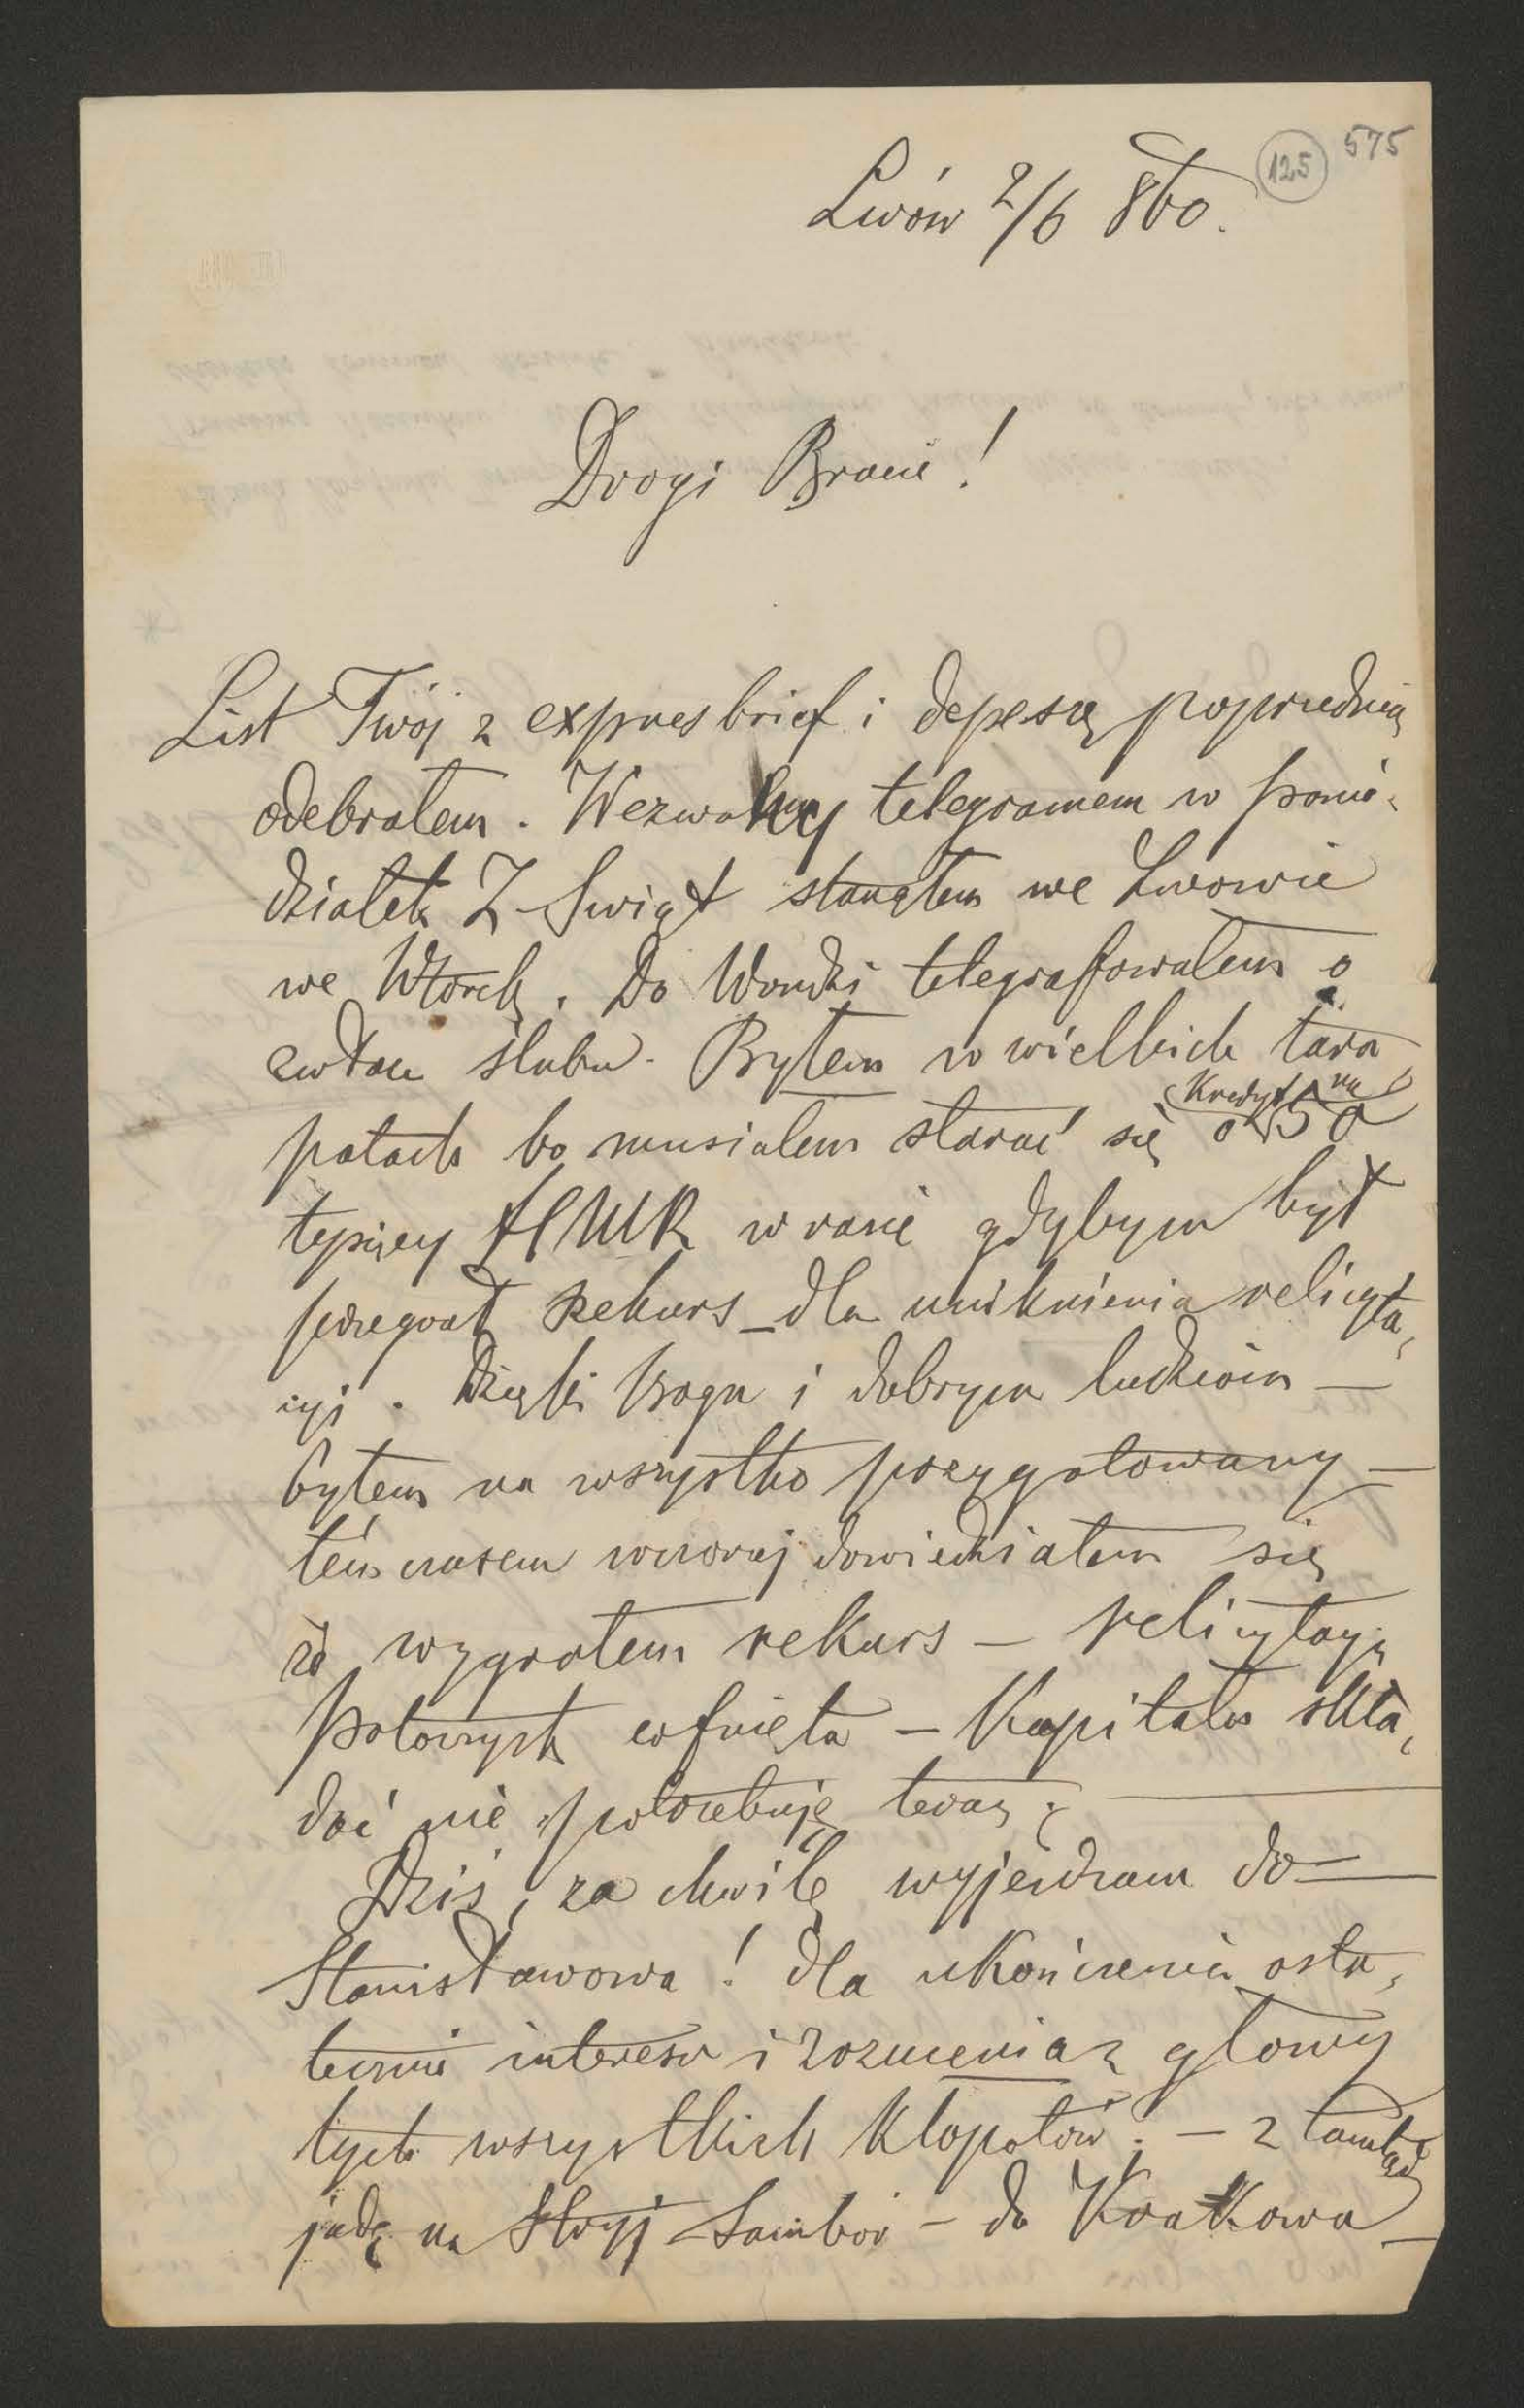 575
125
Lwów 2/6 860.
Drogi Bracie!
List Twój z expresbrief i depeszę poprzednią
odebrałem. Wezwany telegramem w ponie,
działek Z. Świąt stanąłem we Lwowie
we Wtorek. Do Wandzi telegrafowałem o
zwłoce ślubu. Byłem w wielkich tara,
Kredyt na
patach bo musiałem starać się o 50
tysięcy
w razie gdybym był
przegrał Rekurs – dla uniknienia relicyta,
cyi. Dzięki Bogu i dobrym ludziom –
byłem na wszystko przygotowany –
témczasem wczoraj dowiedziałem się
że wygrałem rekurs – relicytacya
Potoczysk cofnięta – Kapitału skła,
dać nie potrzebuję teraz;
Dziś, za chwilę wyjeżdżam do
Stanisławowa! dla ukończenia osta,
tecznie interesu i zrzucenia z głowy
tych wszystkich kłopotów; – z tamtąd
jadę na Stryj – Sambor – do Krakowa –